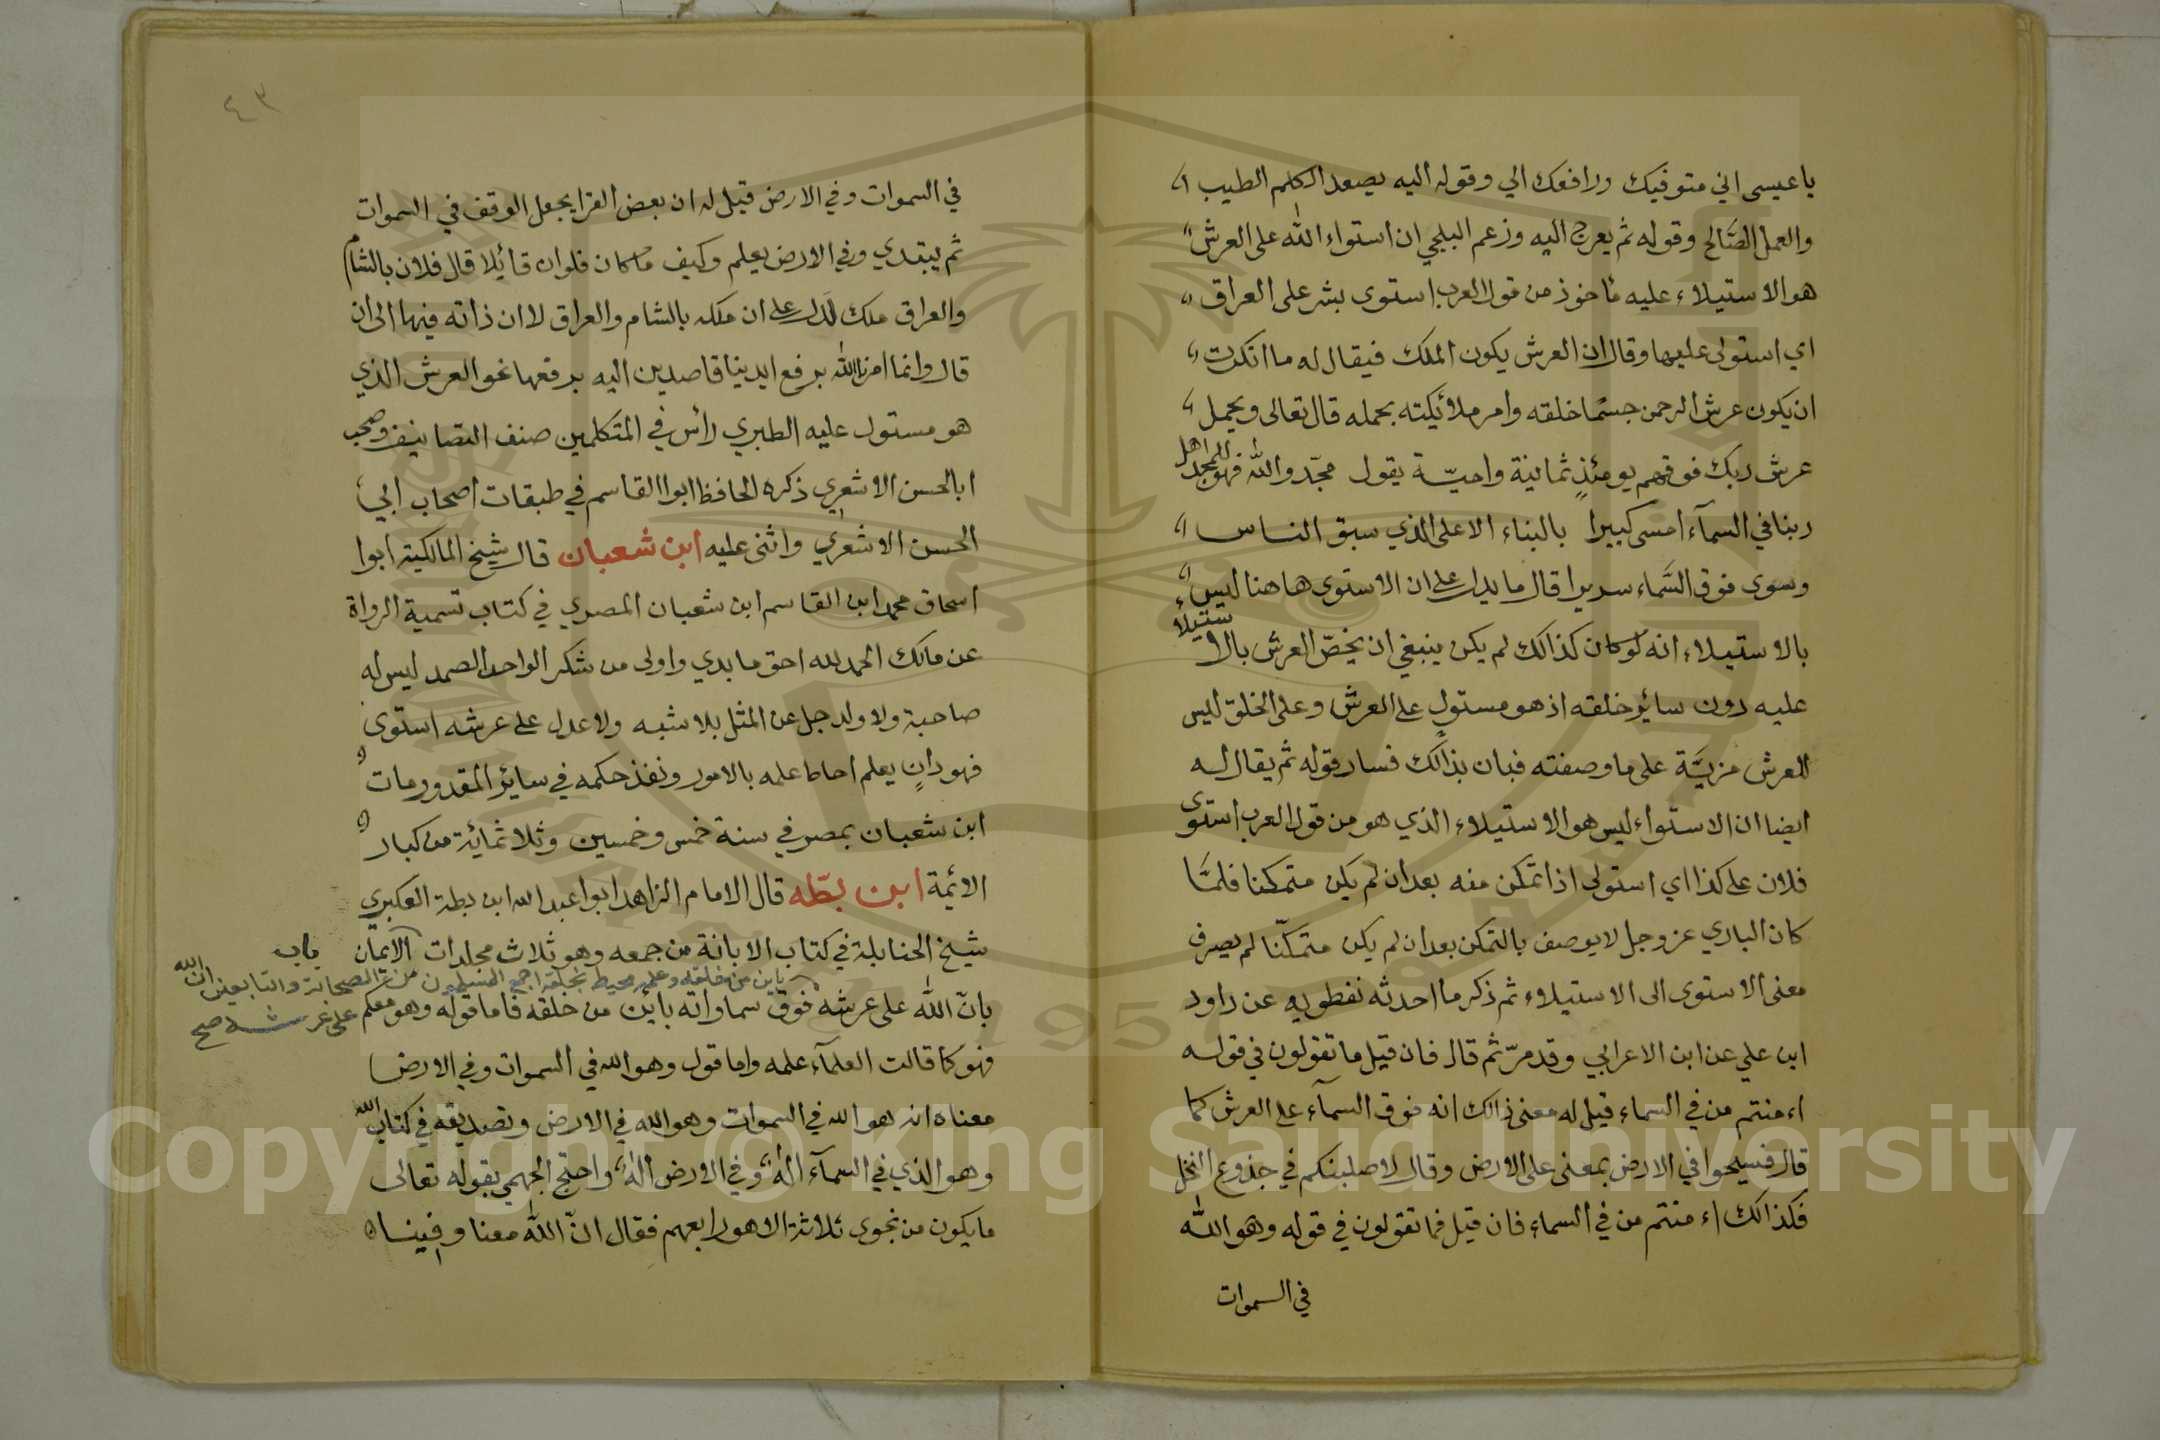 يا عيسى اني متوفيك ورافعك الي وقوله اليه يصعد الكلم الطيب
والعمل الصَّالح وقوله ثم يعرج اليه وزعم البلخي ان استواء الله على العرش
هو الاستيلاء عليه مأخوذ من قول العرب استوى بشر على العراق
اي استولى عليها وقال ان العرش يكون الملك فيقال له ما انكرت
ان يكون عرش الرحمن جسمًا خلقه وامر ملائكيته بحمله قال تعالى ويحمل
عرش ربك فوقهم يومئذٍ ثمانية واميّة يقول مجّدوا الله فهو للمجد اهل
ربنا في السمآء امسى كبيرا بالبناء الاعلى الذي سبق الناس
وسوى فوق السَّماء سريرا قال ما يدل على ان الاستوى هاهنا ليس
بالاستيلاء انه لو كان كذالك لم يكن ينبغي ان يخصّ العرش بالاستيلاء
عليه دون سائر خلقه اذ هو مستولٍ على العرش وعلى الخلق ليس
للعرش مزيَّة على ما وصفته فبان بذالك فساد قوله ثم يقال له
ايضا ان الاستواء ليس هو الاستيلاء الذي هو من قول العرب استوى
فلان على كذا اي استولى اذا تمكن منه بعد ان لم يكن متمكنا فلمَّا
كان الباري عز وجل لا يوصف بالتمكن بعد ان لم يكن متمكنّا لم يصرف
معنى الاستوى الى الاستيلاء ثم ذكر ما احدثه نفطويه عن داود
ابن علي عن ابن الاعرابي وقد مرّ ثم قال فان قيل ما تقولون في قوله
اء منتم من في السماء قيل له معنى ذالك انه فوق السمآء على العرش كما
قال فسيحوا في الارض بمعنى على الارض وقال لاصلبنكم في جذوع النخل
فكذالك اء منتم من في السماء فان قيل فما تقولون في قوله وهو الله
في السموات
٤٣
في السموات وفي الارض قيل له ان بعض القرا يجعل الوقف في السموات
ثم يبتدي وفي الارض يعلم وكيف ما كان فلو ان قائلا قال فلان بالشام
والعراق ملك لَدل على ان ملكه بالشام والعراق لا ان ذاته فيهما الى ان
قال وانما امرنا الله برفع ايدينا قاصدين اليه برفعها نحو العرش الذي
هو مستول عليه الطبري رأس في المتكلمين صنف التصانيف وصحب
ابا لحسن الاشعري ذكره الحافظ ابوا القاسم في طبقات اصحاب ابي
الحسن الاشعري واثنى عليه ابن شعبان قال شيخ المالكية ابوا
اسحاق محمد ابن القاسم ابن شعبان المصري في كتاب تسمية الرواة
عن مالك الحمد لله احق ما بدي واولى من شكر الواحد الصمد ليس له
صاحبة ولا ولد جل عن المثل بلا شبه ولا عدل على عرشه استوى
فهو دانٍ يعلم احاط علمه بالامور ونفذ حكمه في سائر المقدور مات
ابن شعبان بمصر في سنة خمس وخمسين وثلاثمائة من كبار
الائمة ابن بطّه قال الامام الزاهد ابوا عبد الله ابن بطة العكبري
شيخ الحنابلة في كتاب الابانة من جمعه وهو ثلاث مجلدات الايمان
باب
باين من خلقه وعلمه محيط بخلقه اجمع المسلمون من الصحابة والتابعين ان الله
على عرشه صح
بانّ الله على عرشه فوق سماواته بائن من خلقه فاما قوله وهو معكم
فهو كما قالت العلمآء علمه واما قول وهو الله في السموات وفي الارض
معناه انه هو الله في السموات وهو الله في الارض وتصديقه في كتاب الله
وهو الذي في السمآء اله وفي الارض اله واحتج الجهمي بقوله تعالى
ما يكون من نجوى ثلاثة الا هو رابعهم فقال انّ الله معنا وفينا
Copyright © King Saud University
1957